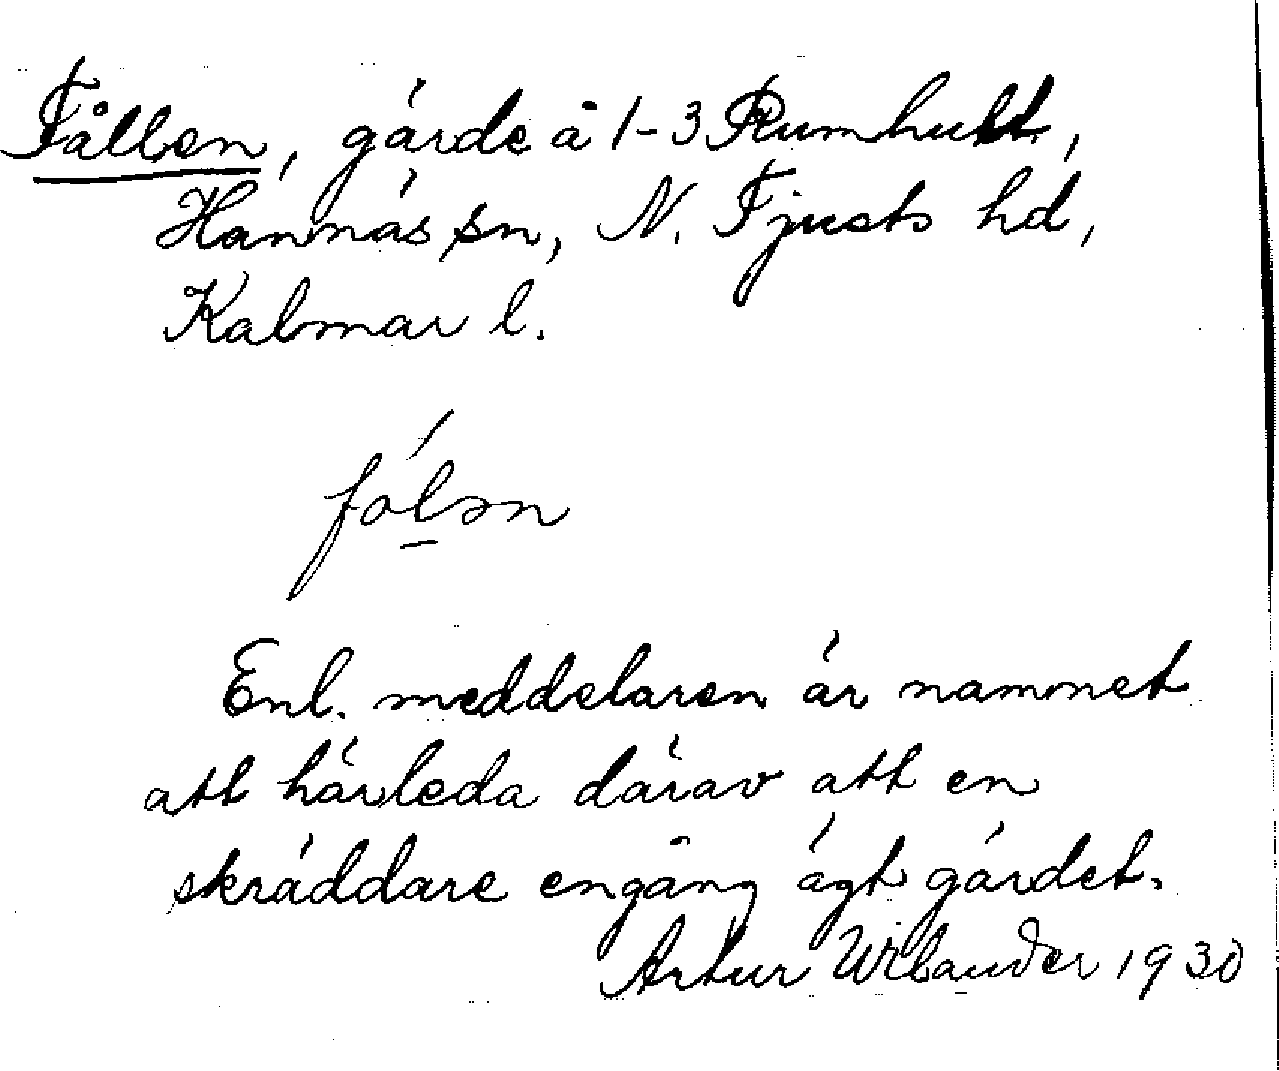 Fållen, gärde å 1-3 Rumhult,
Hannäs sn, N. Tjusts hd,
Kalmar l.
fó̱lən
Enl. meddelaren är namnet
att härleda därav att en
skräddare engång ägt gärdet.
Artur Wilander 1930